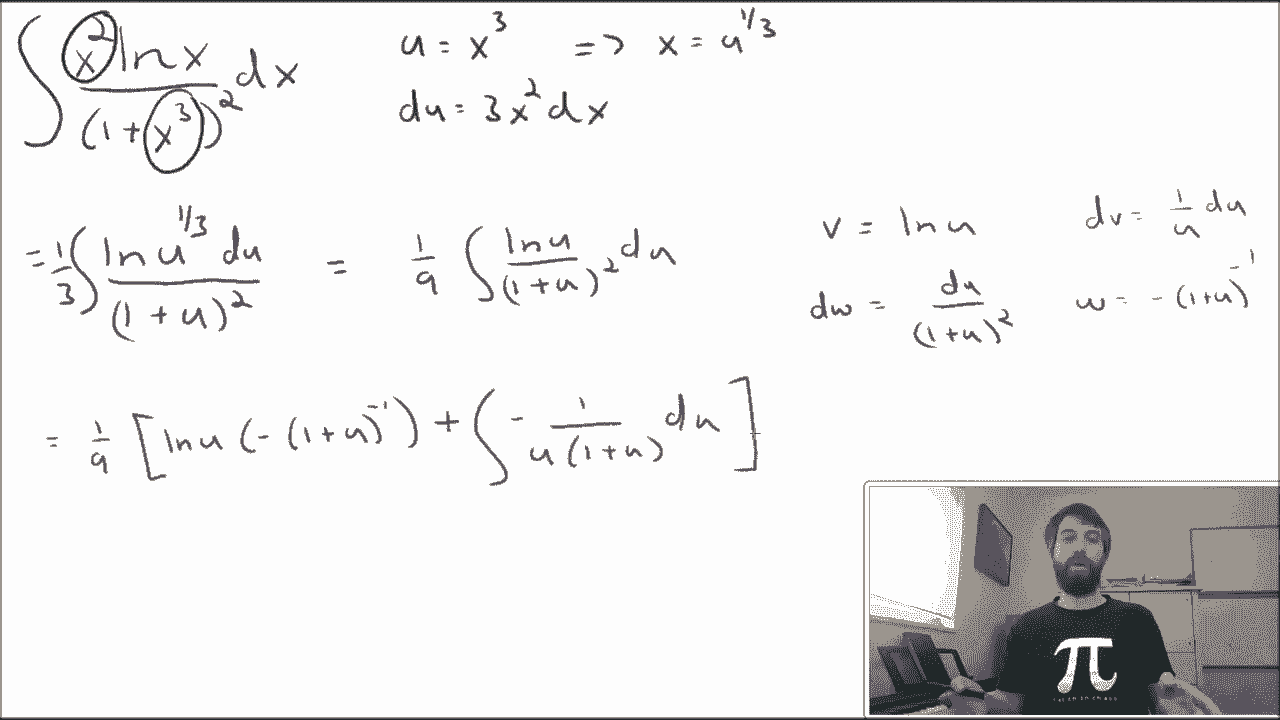 ∫ x² ln x / (1 + x³)² dx    u = x³ => x = u^{1/3}
du = 3x² dx
= 1/3 ∫ ln u^{1/3} du / (1 + u)² = 1/9 ∫ ln u / (1+u)² du    v = ln u    dv = 1/u du
dw = du / (1+u)²    w = - (1+u)^{-1}
= 1/9 [ ln u (- (1+u)^{-1}) + ∫ - 1 / u(1+u) du ]
π